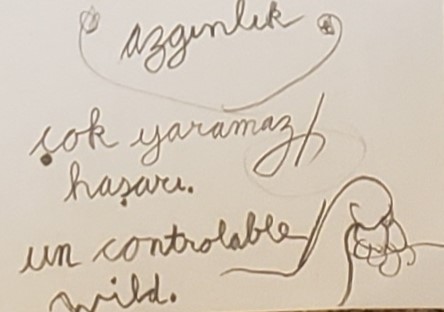 azgınlık
çok yaramaz/
haşarı.
un controlable/
wild.